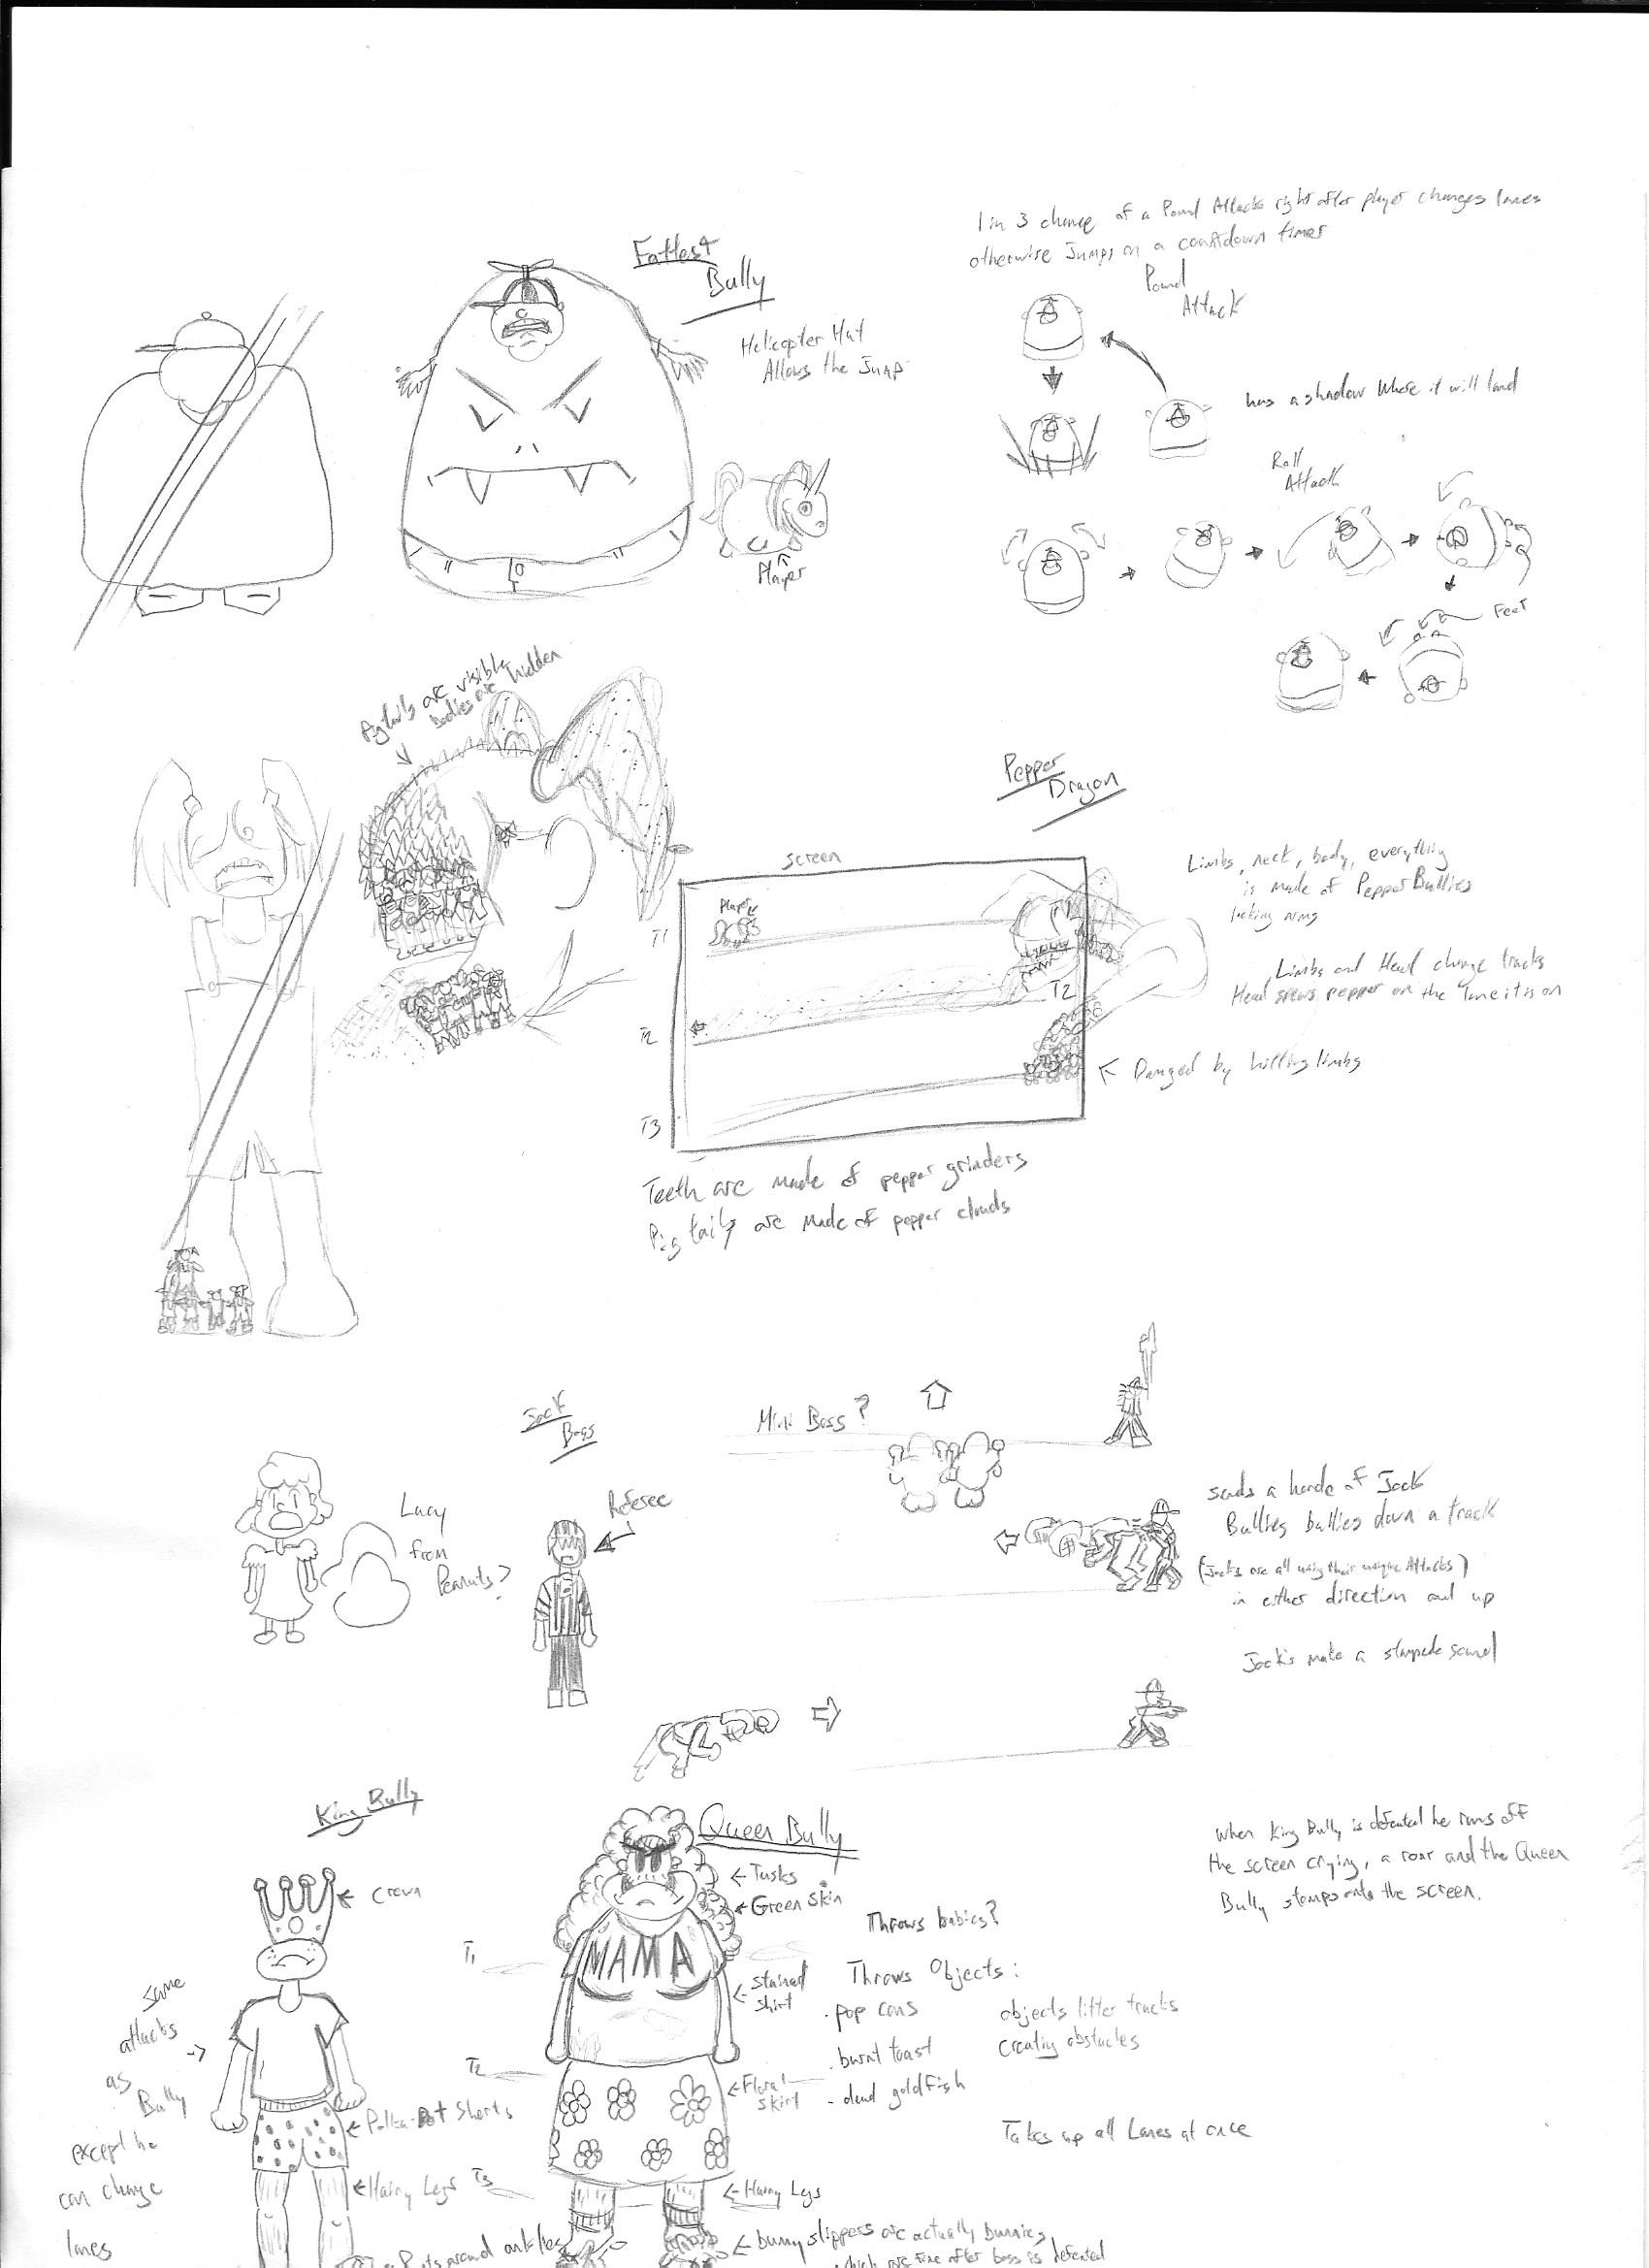 1 in 3 chance of a Pound Attack right after player changes lanes
otherwise Jumps on a countdown timer
Fattest
Bully
Helicopter Hat
Allows the Jump
Player
Pound
Attack
has a shadow where it will land
Roll
Attack
Feet
Pigtails are visible
bodies are hidden
Pepper
Dragon
screen
Player
T1
T2
T2
T3
Limbs, neck, body, everything
is made of Pepper Bullies
locking arms
Limbs and Head change tracks
Head spews pepper on the lane it is on
Damged by hitting limbs
Teeth are made of pepper grinders
Pigtails are made of pepper clouds
Jock
Boss
Mini Boss?
Lucy
from
Peanuts?
Referee
sends a horde of Jock
Bullies bullies down a track
(Jocks are all using their unique Attacks)
in either direction and up
Jock's make a stampede sound
King Bully
Crown
same
attacks
as
Bully
except he
can change
lanes
Polka-Dot Shorts
Hairy Legs
Pants around ankles
Queen Bully
Tusks
Green skin
MAMA
stained
shirt
Floral
skirt
Hairy Legs
bunny slippers are actually bunnies
which are free after boss is defeated
T1
T2
T3
Throws babies?
Throws Objects:
· pop cans
· burnt toast
- dead goldfish
objects litter tracks
creating obstacles
Takes up all Lanes at once
When King Bully is defeated he runs off
the screen crying, a roar and the Queen
Bully stomps onto the screen.